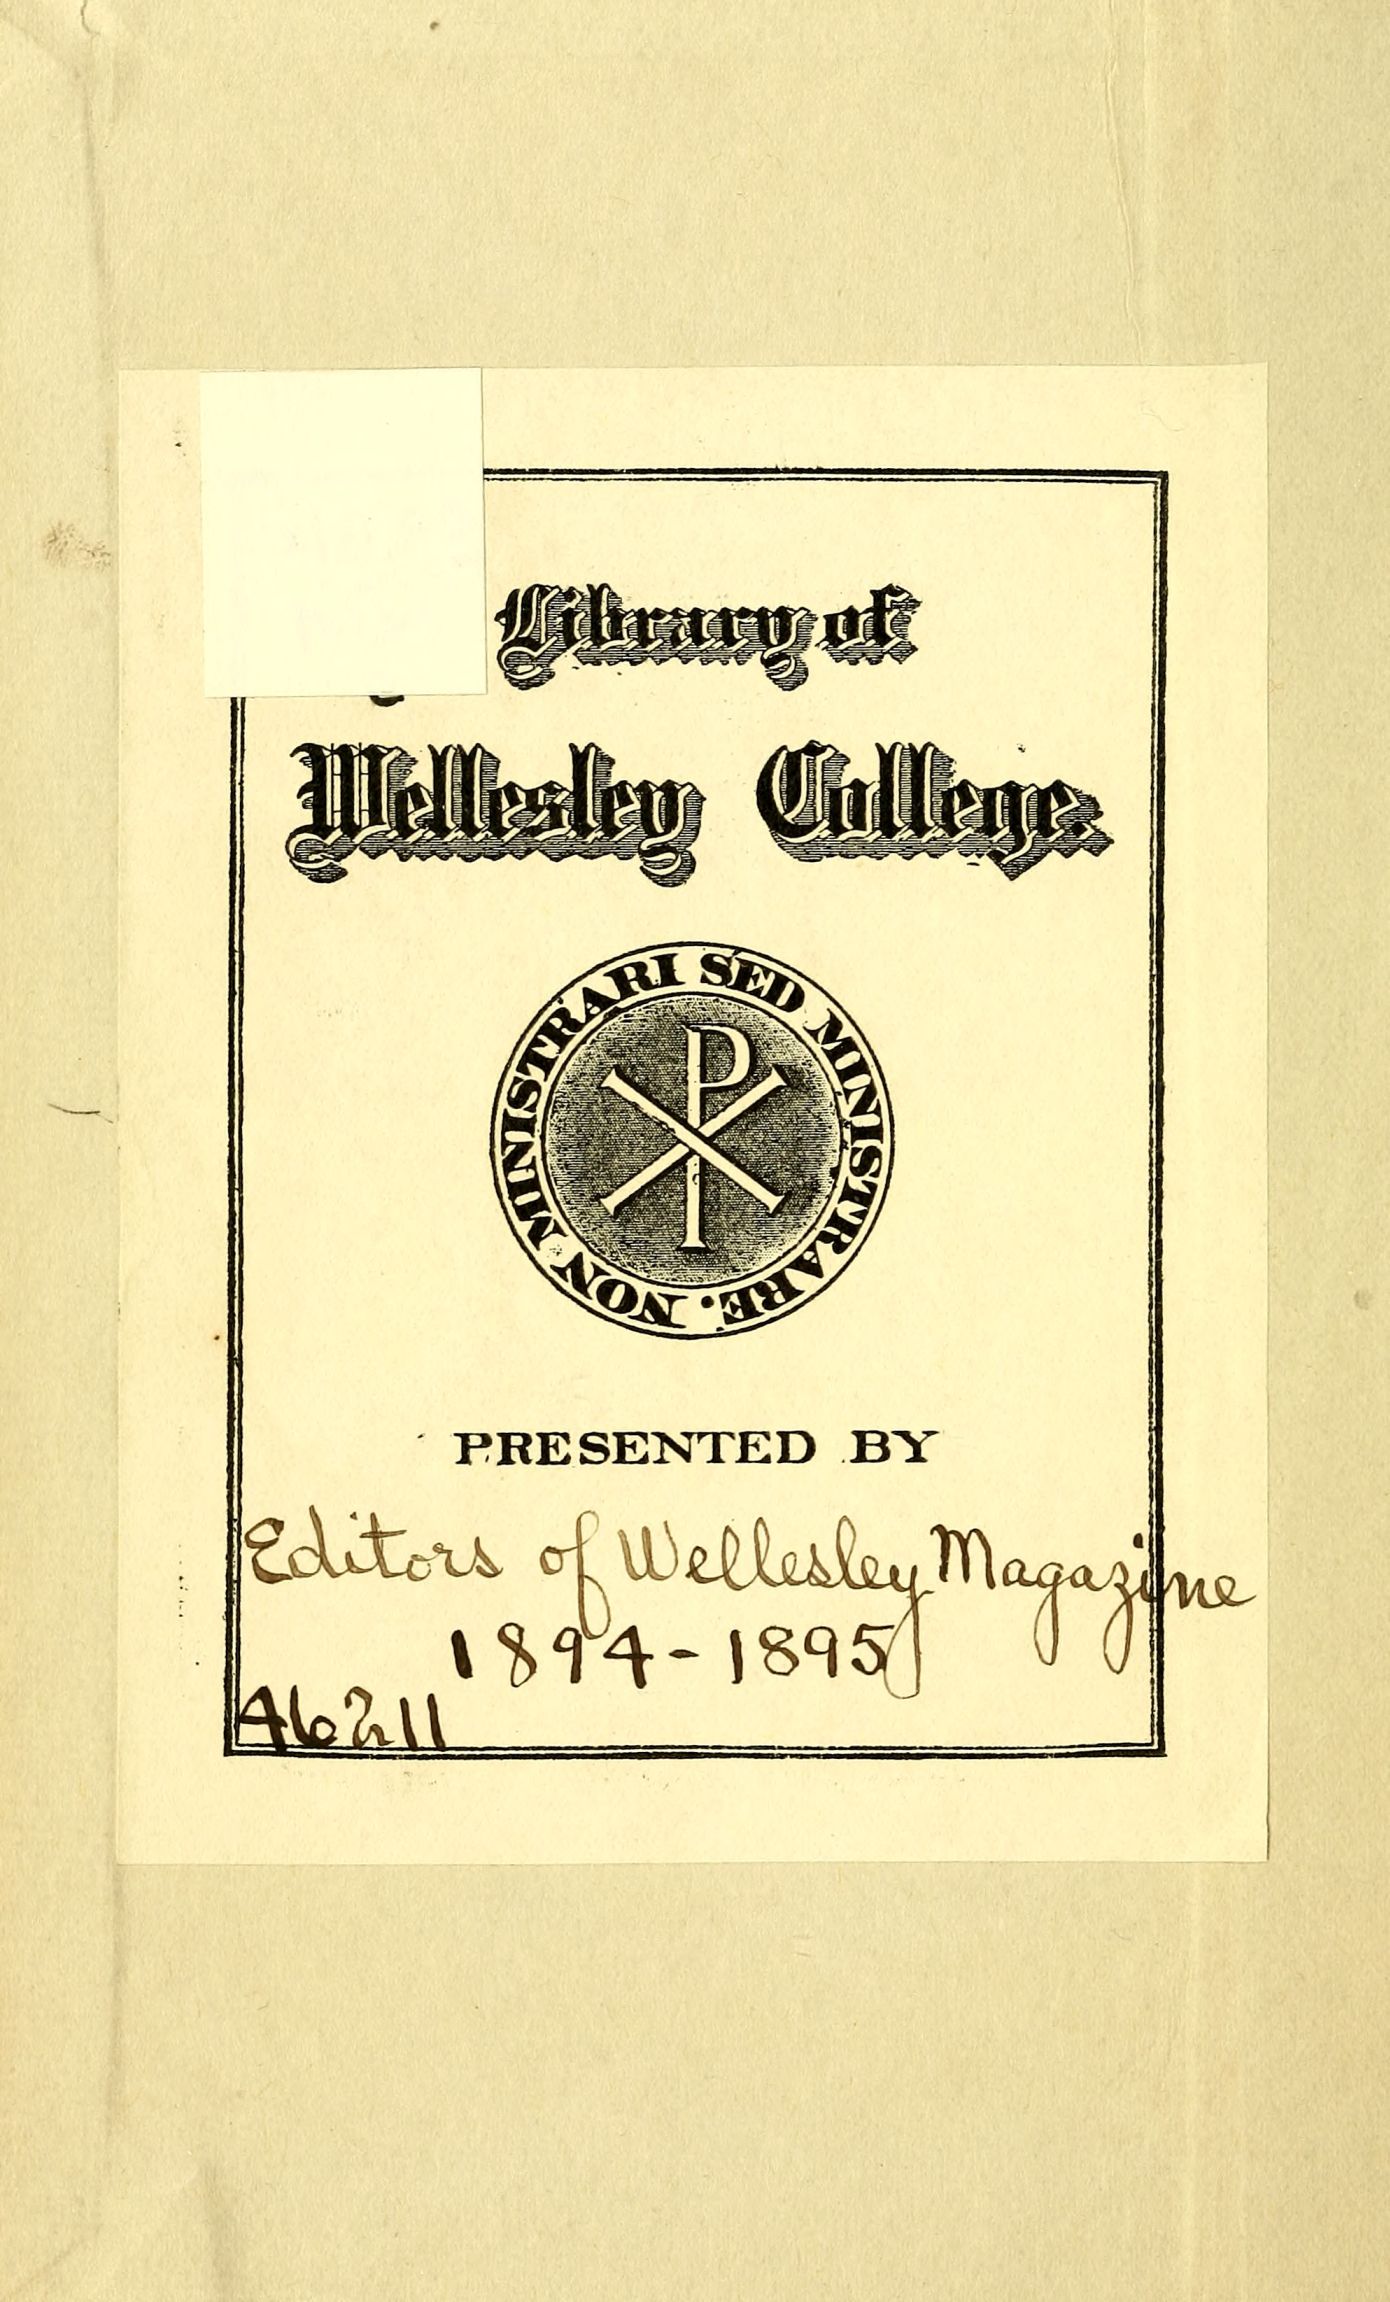 Library of
Wellesley College.
NON MINISTRARI SED MINISTRARE.
PRESENTED BY
Editors of Wellesley Magazine
1894-1895
46211